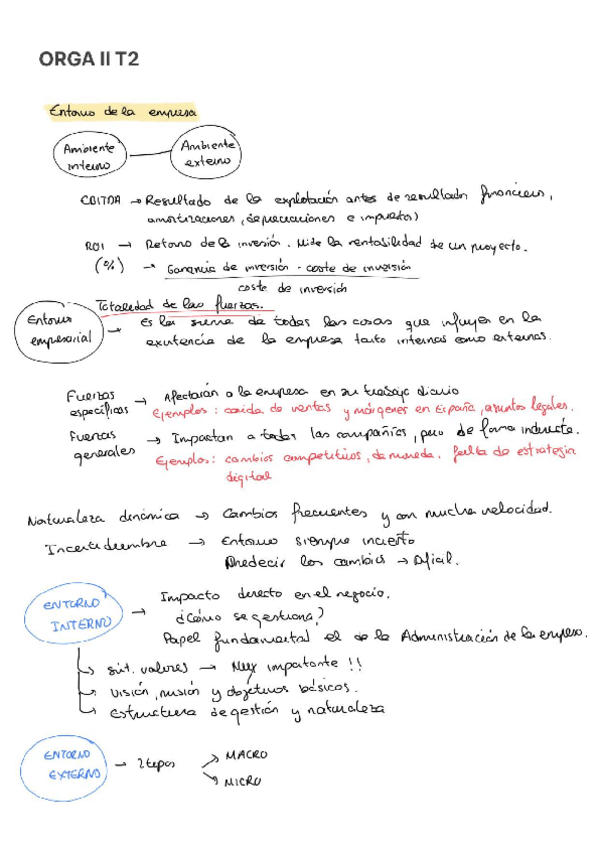 ORGA II T2
Entorno de la empresa
Ambiente interno
Ambiente externo
EBITDA → Resultado de la explotación antes de resultados financieros,
amortizaciones, depreciaciones e impuestos)
ROI → Retorno de la inversión. Mide la rentabilidad de un proyecto.
(%) → Ganancia de inversión - coste de inversión
coste de inversión
Totalidad de las fuerzas.
Entorno empresarial → Es la suma de todas las cosas que influyen en la
existencia de la empresa tanto internas como externas.
Fuerzas específicas → Afectarán a la empresa en su trabajo diario
Ejemplos: caída de ventas y márgenes en España, asuntos legales.
Fuerzas generales → Impactan a todas las compañías, pero de forma indirecta.
Ejemplos: cambios competitivos, de moneda. falta de estrategia
digital
Naturaleza dinámica → Cambios frecuentes y con mucha velocidad.
Incertidumbre → Entorno siempre incierto
Predecir los cambios → Difícil.
ENTORNO INTERNO → Impacto directo en el negocio.
¿Cómo se gestiona?
Papel fundamental el de la Administración de la empresa.
→ sist. valores → Muy importante !!
→ visión, misión y objetivos básicos.
→ estructura de gestión y naturaleza
ENTORNO EXTERNO → 2 tipos
→ MACRO
→ MICRO